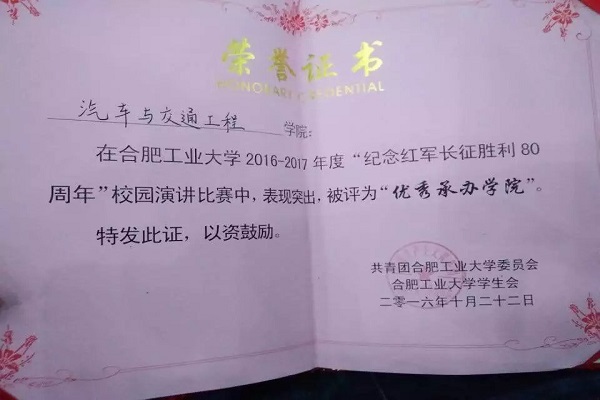 荣誉证书
HONORARY CREDENTIAL
汽车与交通工程学院：
在合肥工业大学2016-2017年度“纪念红军长征胜利80
周年”校园演讲比赛中，表现突出，被评为“优秀承办学院”。
特发此证，以资鼓励。
共青团合肥工业大学委员会
合肥工业大学学生会
二零一六年十月二十二日